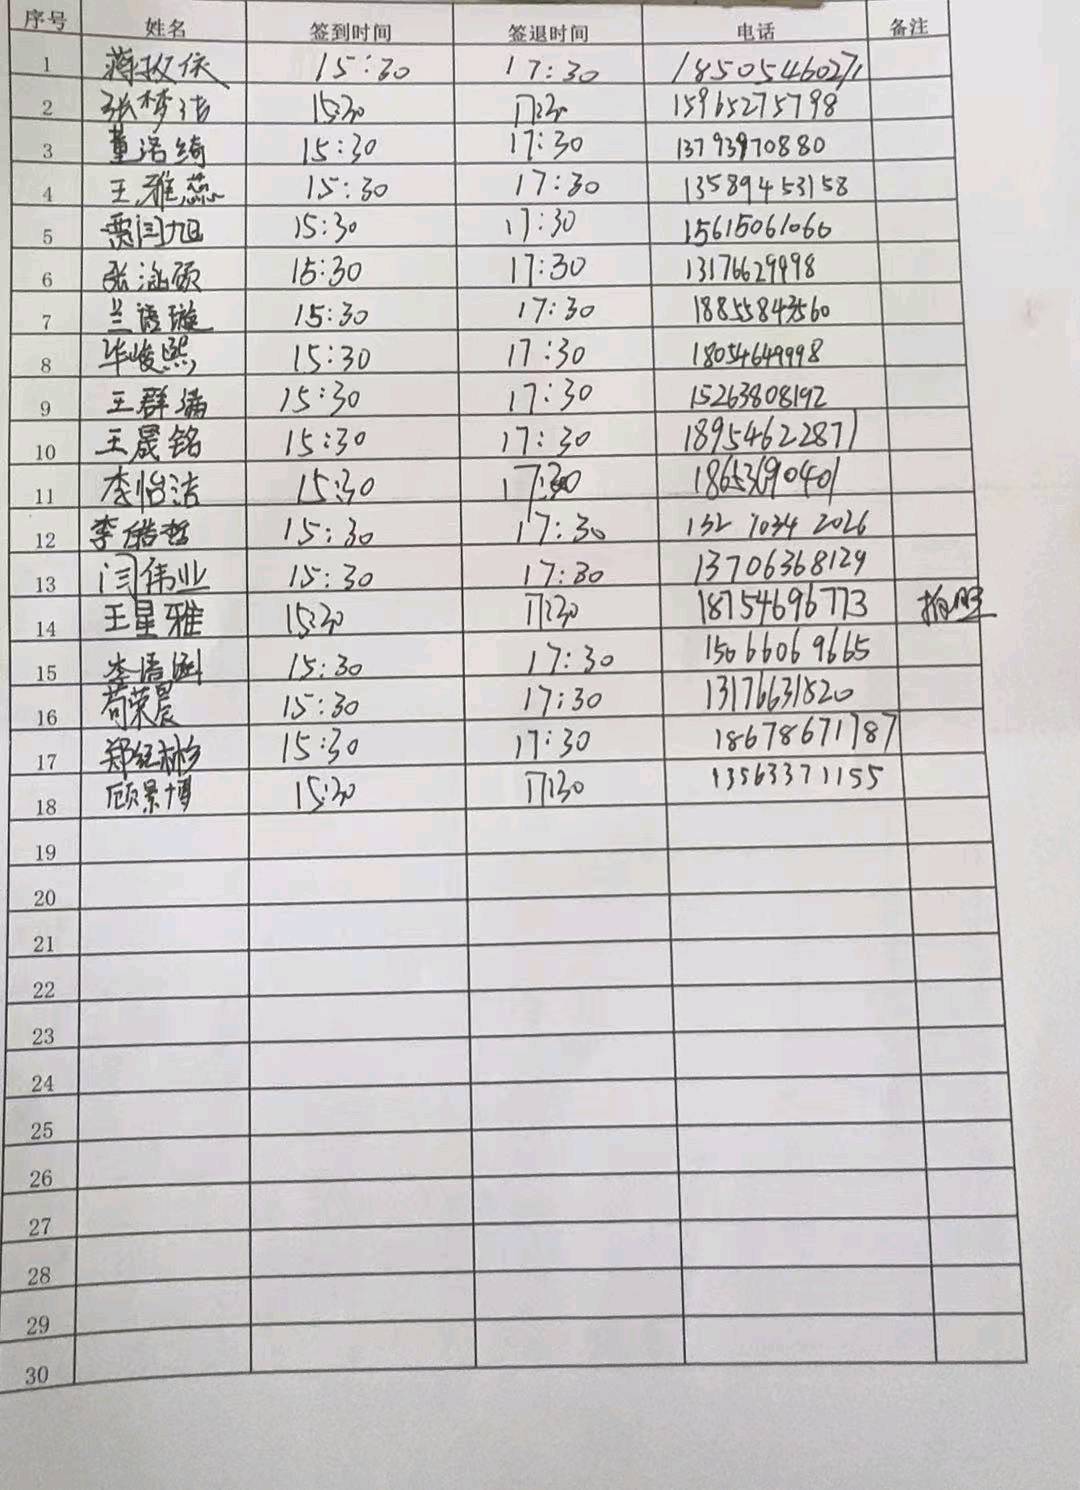 序号 姓名 签到时间 签退时间 电话 备注
1 蒋牧依 15:30 17:30 18505460271
2 张梦洁 15:30 17:30 15965275798
3 董洛绮 15:30 17:30 13793970880
4 王雅蕊 15:30 17:30 13589453158
5 贾闫旭 15:30 17:30 15615061066
6 张涵硕 15:30 17:30 13176629998
7 兰语璇 15:30 17:30 18855843560
8 毕峻熙 15:30 17:30 18054649998
9 王群 15:30 17:30 15263808192
10 王晟铭 15:30 17:30 18954622871
11 李怡洁 15:30 17:30 18653690401
12 李皓哲 15:30 17:30 132 7034 2026
13 闫伟业 15:30 17:30 13706368129
14 王星雅 15:30 17:30 18754696773 拍照
15 李语涵 15:30 17:30 15066069665
16 苟荣晨 15:30 17:30 13176631820
17 郑纪彬 15:30 17:30 18678671787
18 顾景博 15:30 17:30 13563371155
19
20
21
22
23
24
25
26
27
28
29
30